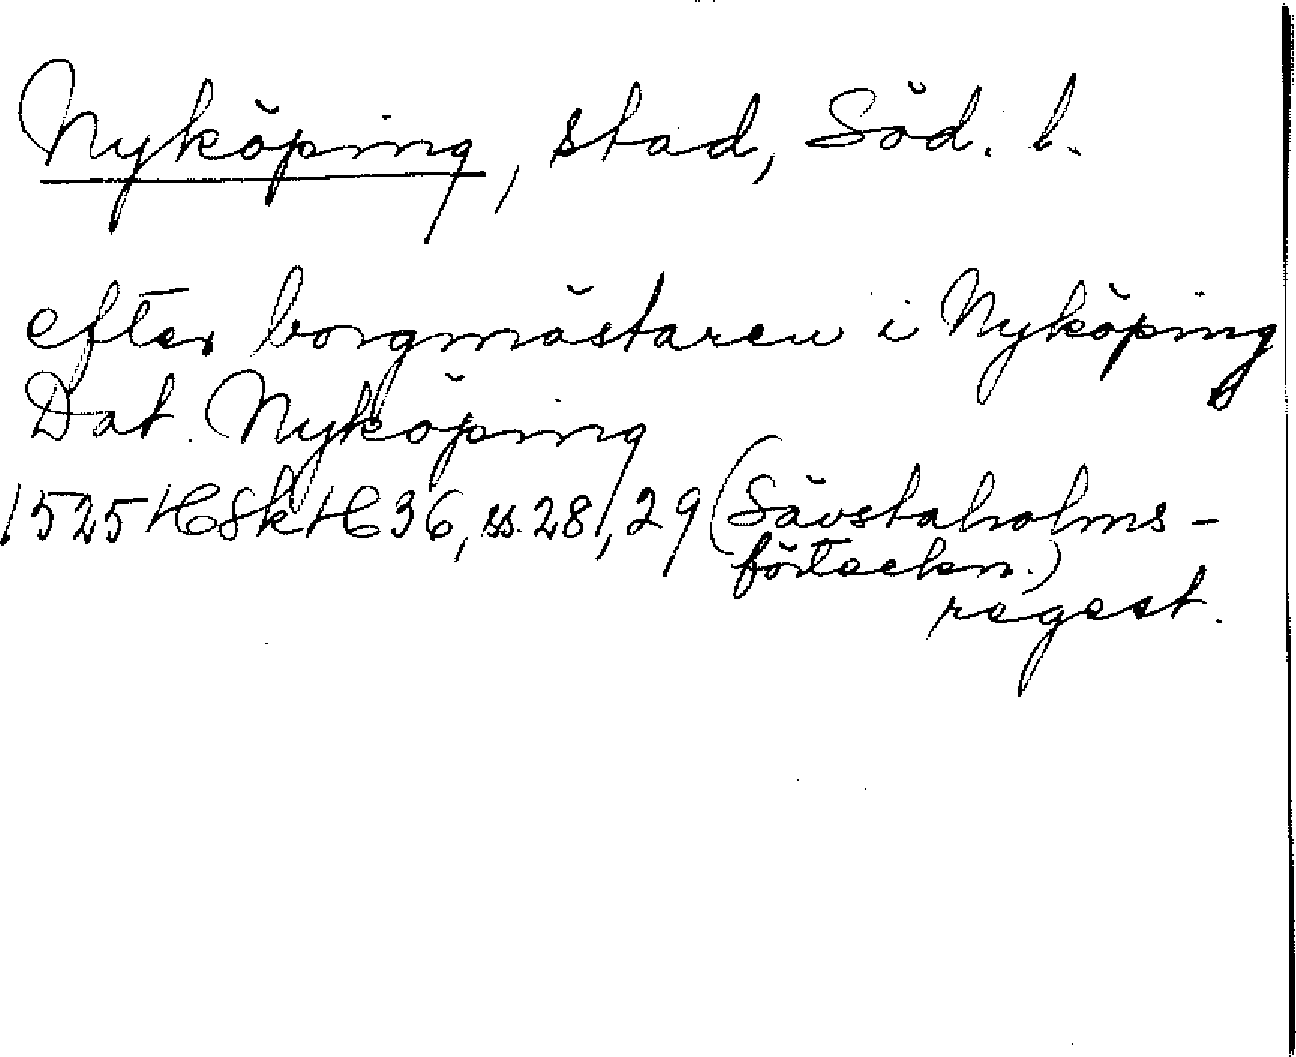 Nyköping, stad, Söd. l.
efter borgmästaren i Nyköping
Dat. Nyköping
1525 HSkH 36, ss. 28, 29 (Sävstaholms-
förteckn.)
regest.